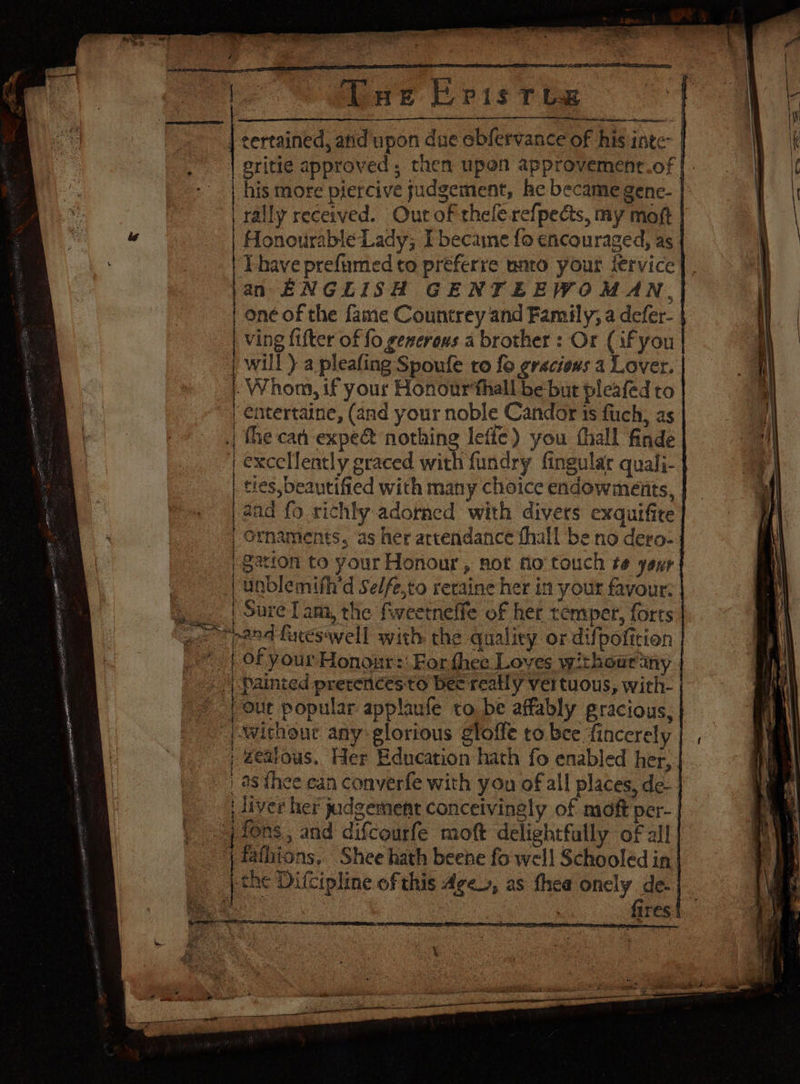 THE EPISTLE
tertained, and upon due obſervance of his inte-
gritie approved; then upon approvement of
his more piercive judgement, he became gene-
rally received. Out of theſe reſpects, my moſt
Honourable Lady; I became ſo encouraged, as
I have preſumed to preferre unto your ſervice
an ENGLISH GENTLEWOMAN,
one of the ſame Countrey and Family; a deſer-
ving ſiſter of ſo generous a brother: Or (if you
will) a pleaſing Spouſe to ſo gracious a Lover.
Whom, if your Honour ſhall be but pleaſed to
entertaine, (and your noble Candor is ſuch, as
ſhe can expect nothing leſſe) you ſhall finde
excellently graced with ſundry ſingular quali-
ties, beautified with many choice endowments,
and ſo richly adorned with divers exquiſite
ornaments, as her attendance ſhall be no dero-
gation to your Honour, nor no touch to your
unblemiſh'd Selfe, to retaine her in your favour.
Sure I am, the ſweetneſſe of her temper, ſorts
and ſutes well with the quality or diſpoſition
of your Honour: For ſhee Loves without any
painted pretences to bee really vertuous, with-
out popular applauſe to be affably gracious,
without any glorious gloſſe to bee ſincerely
zealous. Her Education hath ſo enabled her,
as ſhee can converſe with you of all places, de-
liver her judgement conceivingly of moſt per-
ſons, and diſcourſe moſt delightfully of all
faſhions. Shee hath beene ſo well Schooled in
the Diſcipline of this Age, as ſhea onely de-
ſires